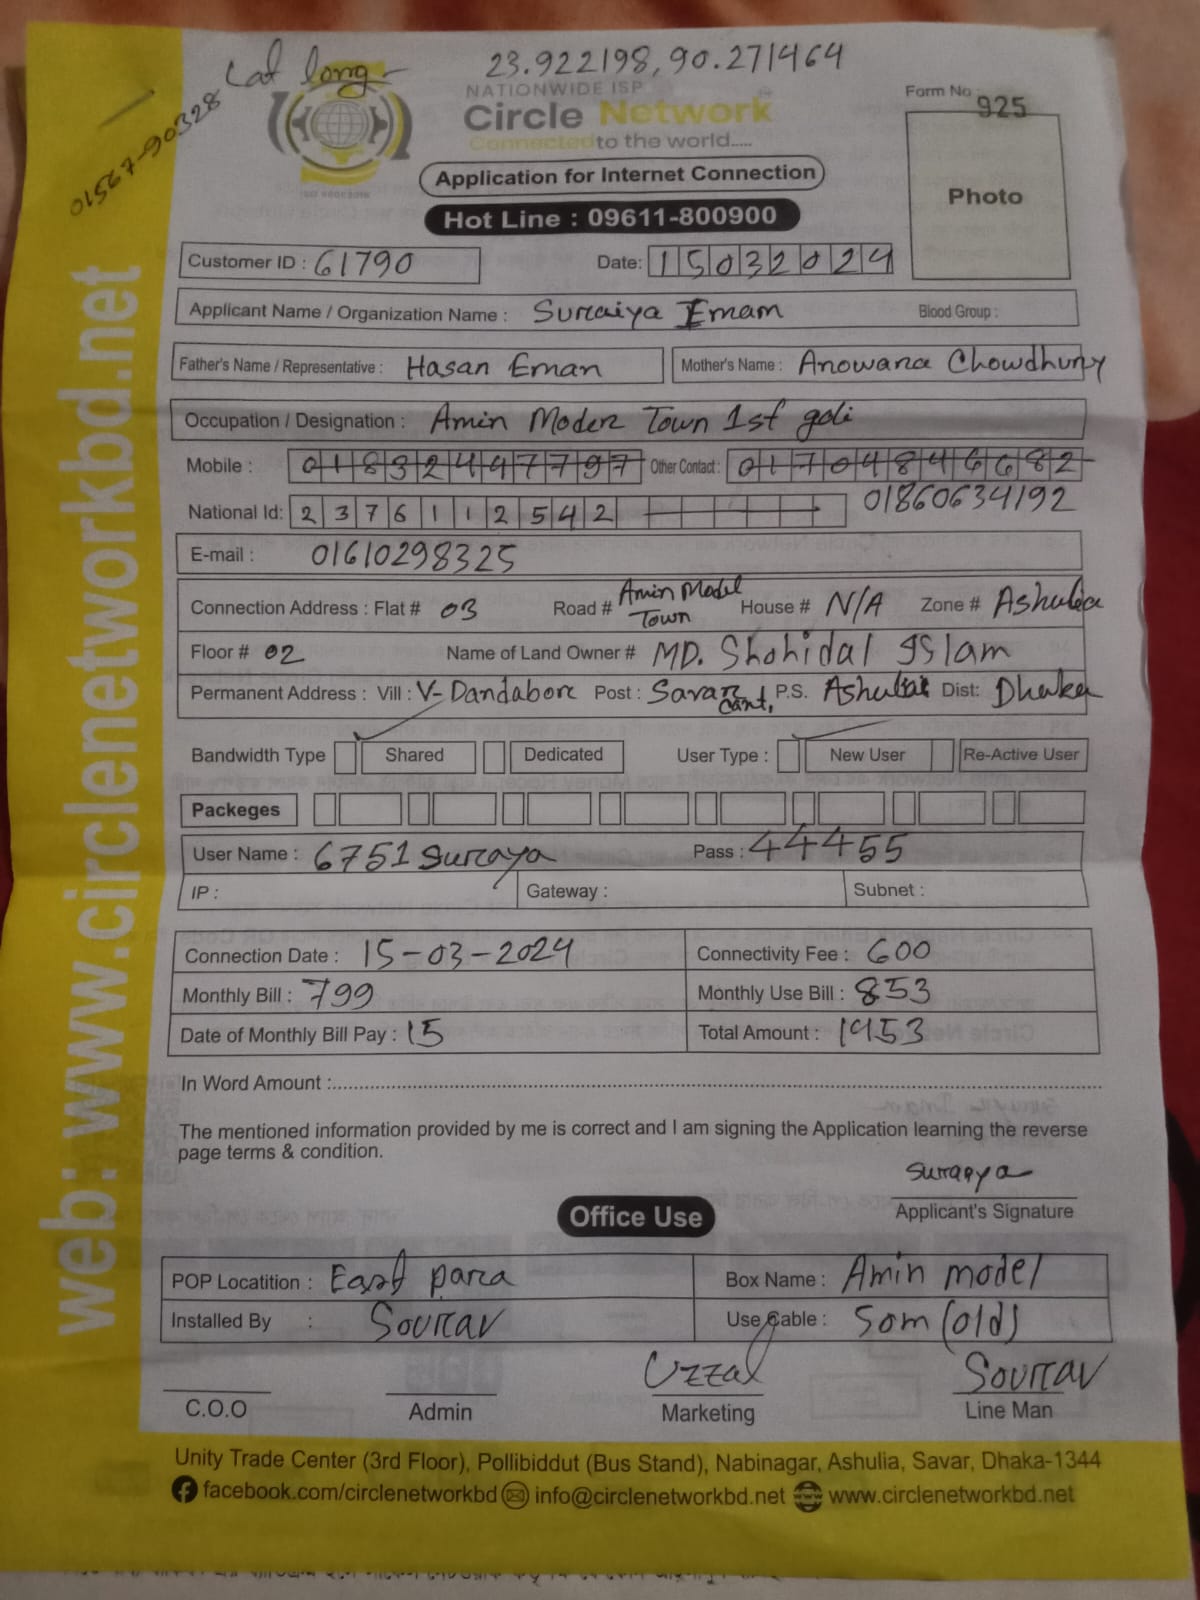 Lat long - 23.922198, 90.271464
01527-90328
NATIONWIDE ISP
Circle Network
Connected to the world.....
Form No 925
Photo
Application for Internet Connection
Hot Line : 09611-800900
Customer ID : 61790 Date: 15032024
Applicant Name / Organization Name : Suraiya Emam Blood Group :
Father's Name / Representative : Hasan Eman Mother's Name : Anowara Chowdhury
Occupation / Designation : Amin Moder Town 1st goli
Mobile : 01832447797 Other Contact : 01704846682
National Id: 2376112542 01860634192
E-mail : 01610298325
Connection Address : Flat # 03 Road # Amin Model Town House # N/A Zone # Ashulia
Floor # 02 Name of Land Owner # MD. Shohidal Islam
Permanent Address : Vill : V-Dandabore Post : Savar Cant, P.S. Ashulia Dist: Dhaka
Bandwidth Type Shared Dedicated User Type : New User Re-Active User
Packeges
User Name : 6751suraya Pass : 44455
IP : Gateway : Subnet :
Connection Date : 15-03-2024 Connectivity Fee : 600
Monthly Bill : 799 Monthly Use Bill : 853
Date of Monthly Bill Pay : 15 Total Amount : 1453
In Word Amount :
The mentioned information provided by me is correct and I am signing the Application learning the reverse
page terms & condition.
Applicant's Signature
Office Use
POP Locatition : East para Box Name : Amin model
Installed By : Sourav Use Cable : 50m (old)
Uzzal Sourav
C.O.O Admin Marketing Line Man
Unity Trade Center (3rd Floor), Pollibiddut (Bus Stand), Nabinagar, Ashulia, Savar, Dhaka-1344
facebook.com/circlenetworkbd info@circlenetworkbd.net www.circlenetworkbd.net
web: www.circlenetworkbd.net